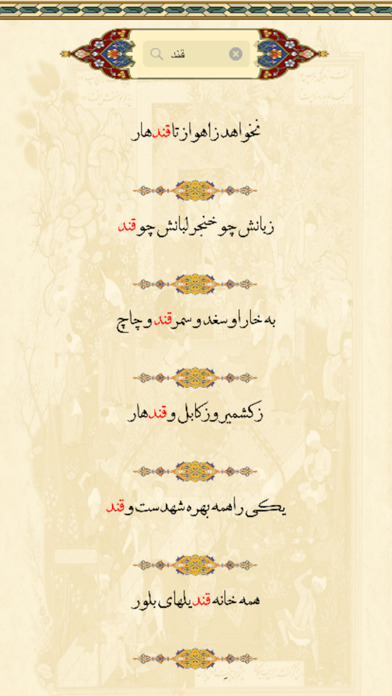 قند
نخواهد ز اهواز تا قندهار
زبانش چو خنجر لبانش چو قند
به خارا و سغد و سمرقند و چاچ
ز کشمیر وز کابل و قندهار
یکی را همه بهره شهدست و قند
همه خانه قندیلهای بلور